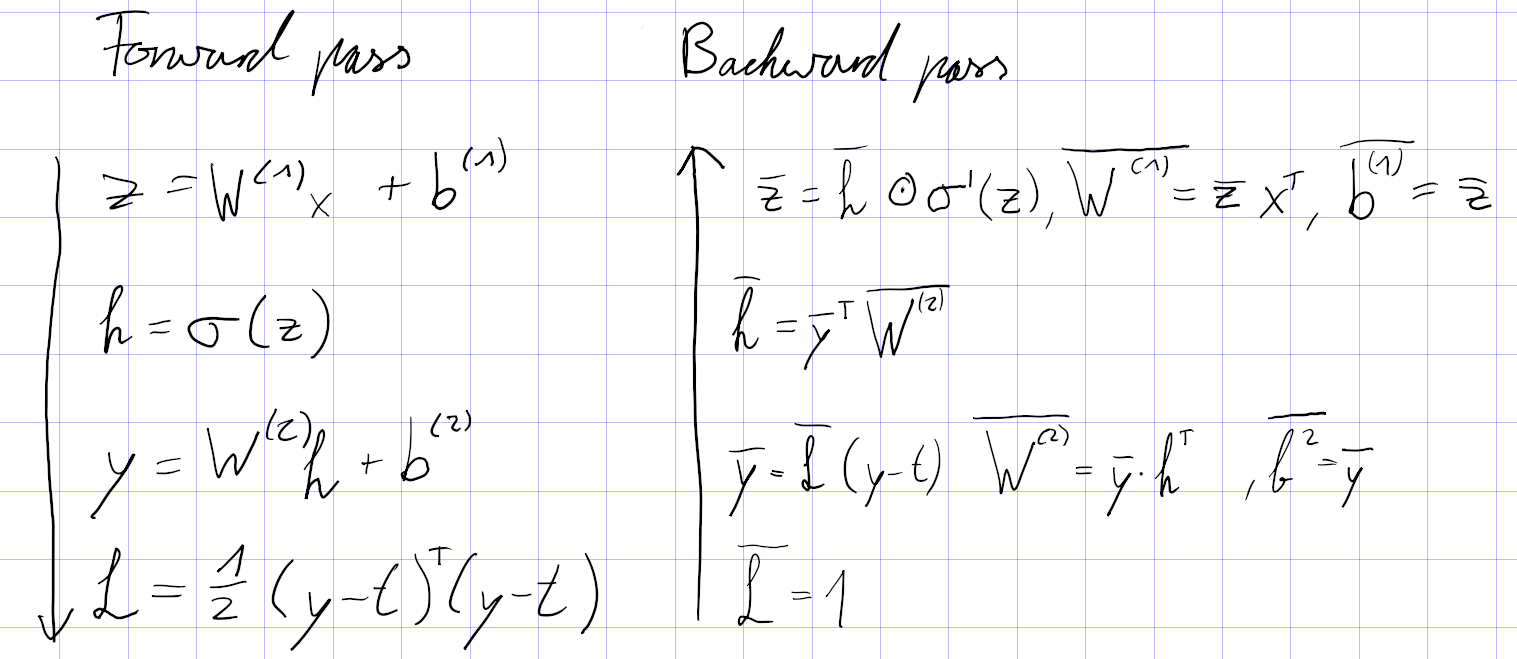 Forward pass
z = W⁽¹⁾x + b⁽¹⁾
h = σ(z)
y = W⁽²⁾h + b⁽²⁾
ℒ = ½ (y-t)ᵀ(y-t)
Backward pass
z̅ = h̅ ⊙ σ'(z), W̅⁽¹⁾ = z̅ xᵀ, b̅⁽¹⁾ = z̅
h̅ = y̅ᵀ W̅⁽²⁾
y̅ = ℒ̅ (y-t) W̅⁽²⁾ = y̅ · hᵀ , b̅² = y̅
ℒ̅ = 1